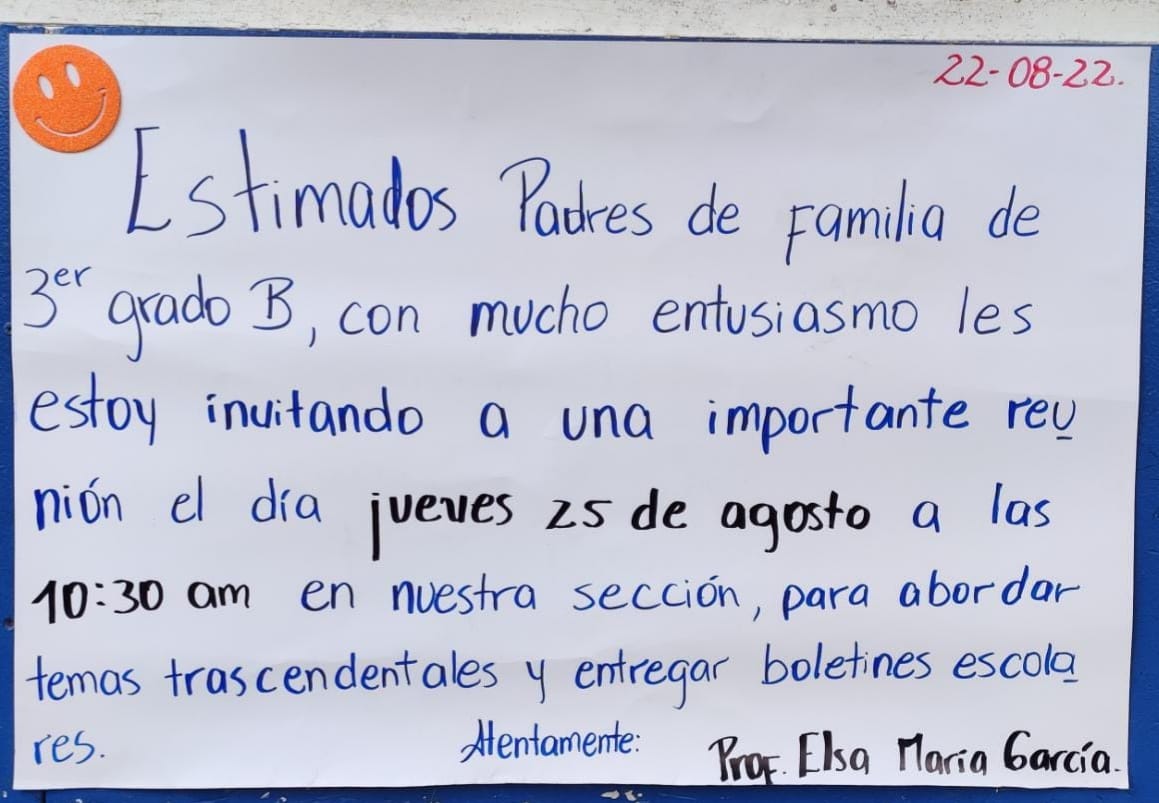 22-08-22.
Estimados Padres de Familia de
3er grado B, con mucho entusiasmo les
estoy invitando a una importante reu
nión el día jueves 25 de agosto a las
10:30 am en nuestra sección, para abordar
temas trascendentales y entregar boletines escola
res. Atentamente: Prof. Elsa María García.